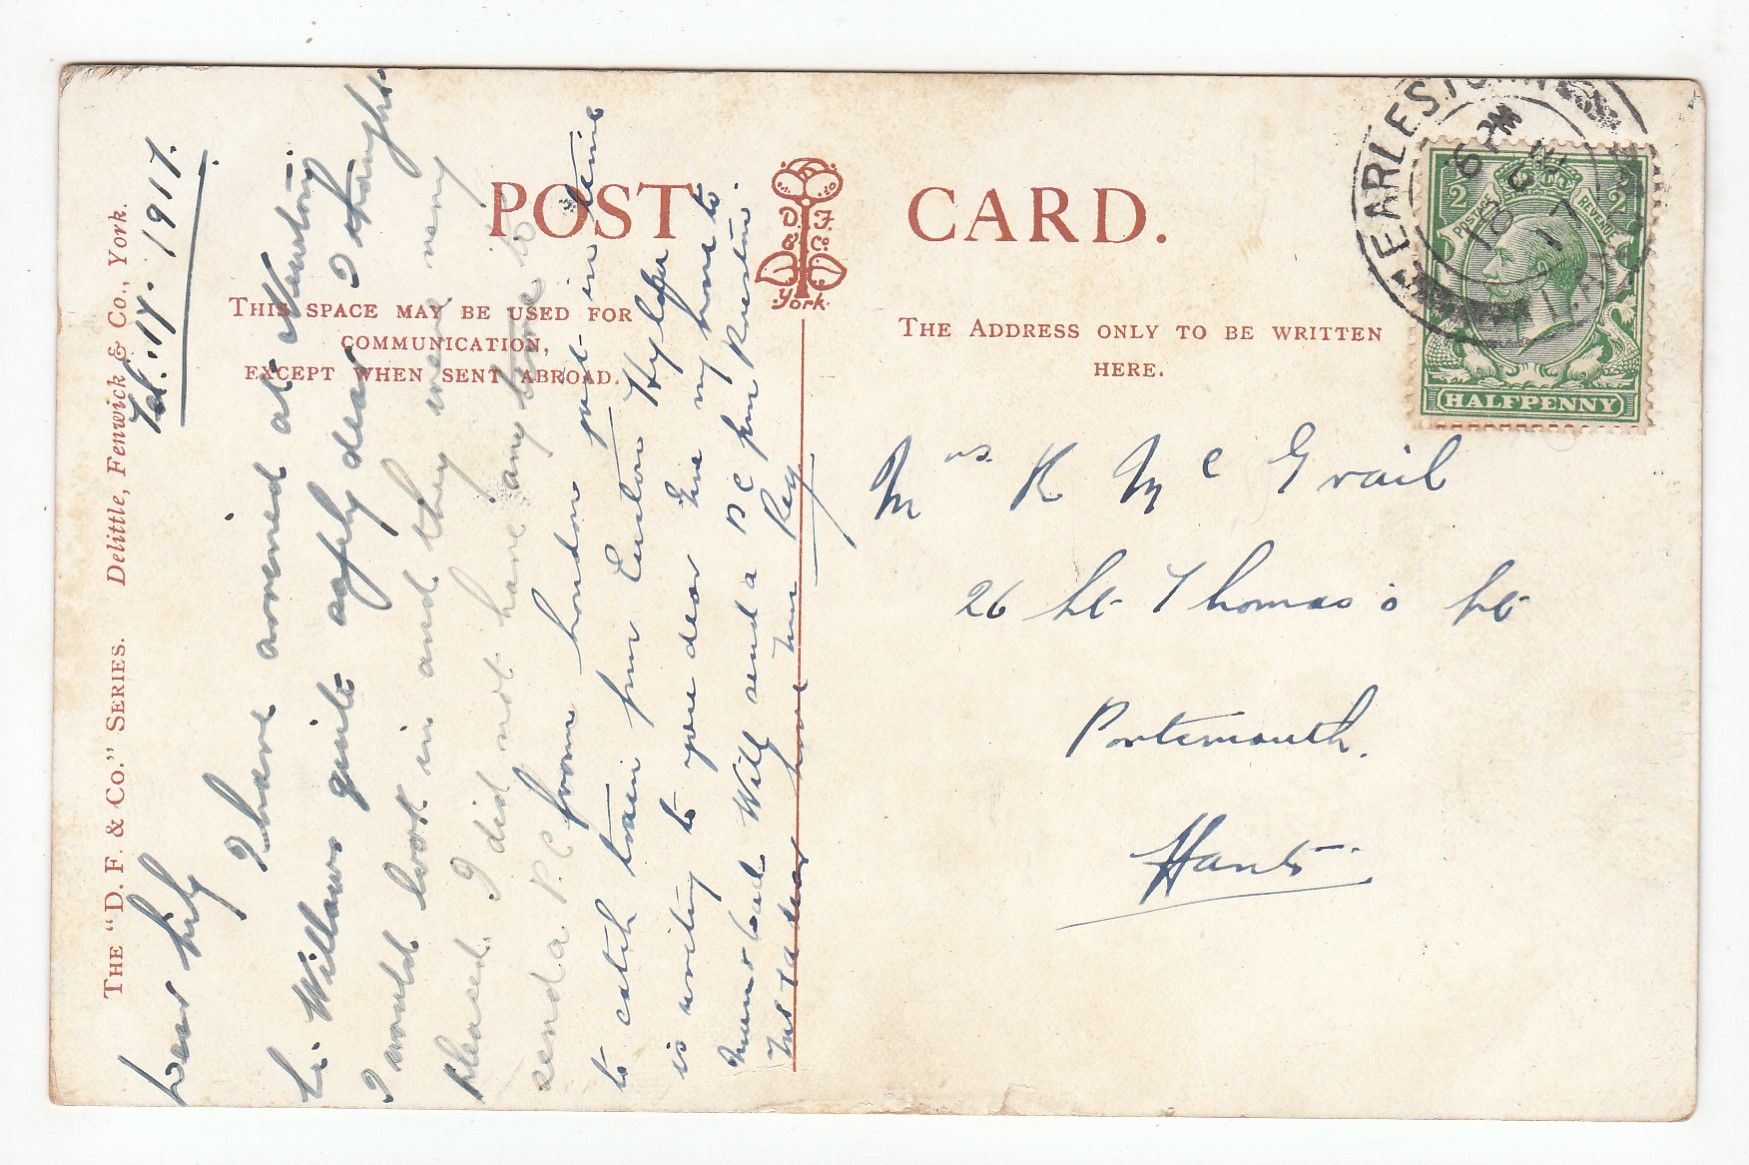 THE "D. F. & CO." SERIES. Delittle, Fenwick & Co., York.
POST CARD.
D. F.
& Co.
York.
THIS SPACE MAY BE USED FOR
COMMUNICATION,
EXCEPT WHEN SENT ABROAD.
THE ADDRESS ONLY TO BE WRITTEN
HERE.
EARLESTOWN
6 PM
18
17
LA
2 2
POSTAGE REVENUE
HALFPENNY
1917.
Dear Lily
I have arrived at Newton
le Willows quite safely dear I thought
I would look in and they were very
pleased. I did not have any time to
send a P.C from London just in time
to catch train from Euston
is writing to you dear my home to
Will send a P C from
dear love Reg
Mrs. K Mc Grail
26 St Thomas's St
Portsmouth.
Hants